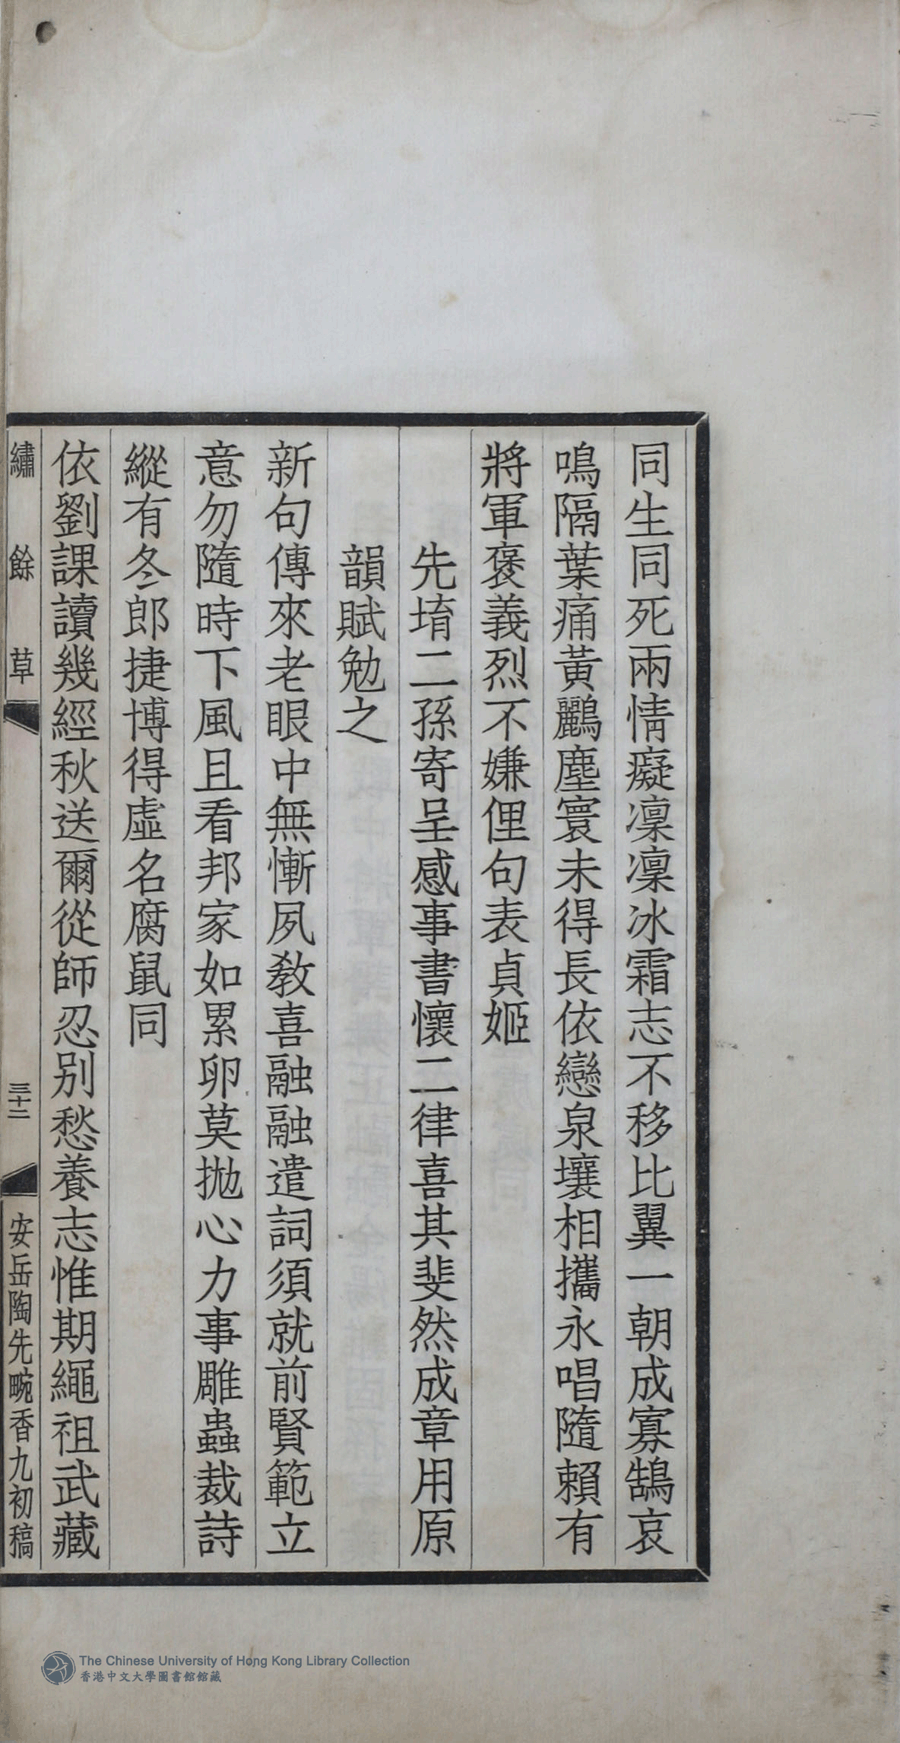 同生同死兩情癡凜凜冰霜志不移比翼一朝成寡鵠哀
鳴隔葉痛黃鸝塵寰未得長依戀泉壤相攜永唱隨賴有
將軍褒義烈不嫌俚句表貞姬
先堉二孫寄呈感事書懷二律喜其斐然成章用原
韻賦勉之
新句傳來老眼中無慚夙教喜融融遣詞須就前賢範立
意勿隨時下風且看邦家如累卵莫拋心力事雕蟲裁詩
縱有冬郎捷博得虛名腐鼠同
依劉課讀幾經秋送爾從師忍別愁養志惟期繩祖武藏
繡餘草
三十二
安岳陶先畹香九初稿
The Chinese University of Hong Kong Library Collection
香港中文大學圖書館館藏